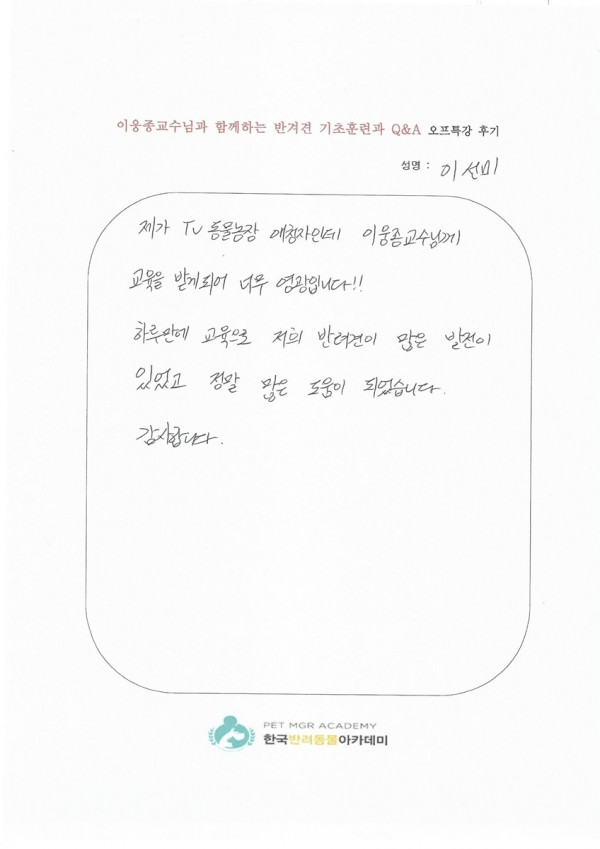 이웅종교수님과 함께하는 반겨견 기초훈련과 Q&A 오프특강 후기
성명 : 이선미
제가 TV 동물농장 애청자인데 이웅종교수님께
교육을 받게되어 너무 영광입니다!!
하루만에 교육으로 저희 반려견이 많은 발전이
있었고 정말 많은 도움이 되었습니다.
감사합니다.
PET MGR ACADEMY
한국반려동물아카데미